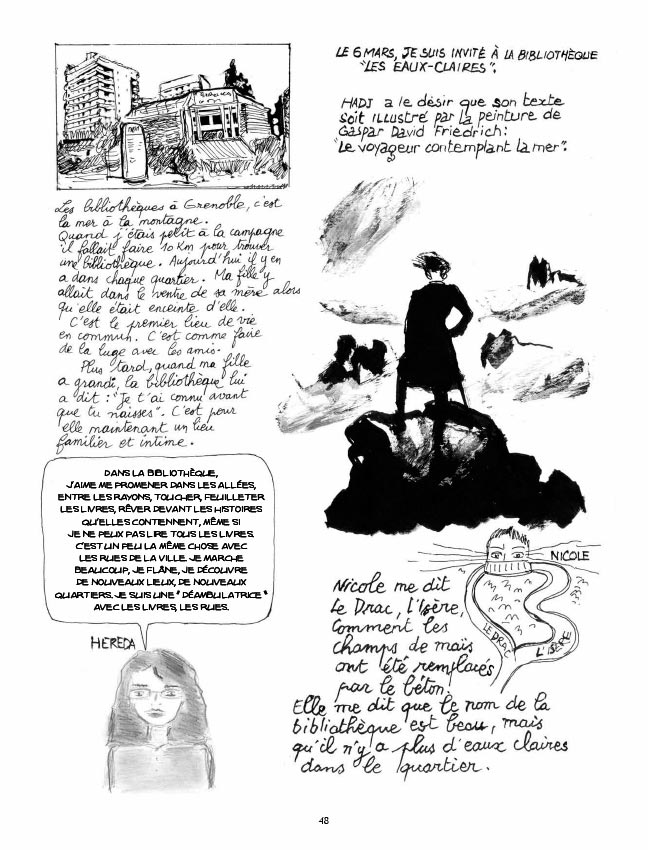 LE 6 MARS, JE SUIS INVITÉ À LA BIBLIOTHÈQUE
"LES EAUX-CLAIRES".
HADJ a le désir que son texte
soit ILLUSTRÉ par la peinture de
Gaspar David Friedrich:
"Le voyageur contemplant la mer".
Les bibliothèques à Grenoble, c'est
la mer à la montagne.
Quand j'étais petit à la campagne
il fallait faire 10 Km pour trouver
une bibliothèque. Aujourd'hui il y en
a dans chaque quartier. Ma fille y
allait dans le ventre de sa mère alors
qu'elle était enceinte d'elle.
C'est le premier lieu de vie
en commun. C'est comme faire
de la luge avec les amis.
Plus tard, quand ma fille
a grandi, la bibliothèque lui
a dit : "Je t'ai connu avant
que tu naisses". C'est pour
elle maintenant un lieu
familier et intime.
DANS LA BIBLIOTHÈQUE,
J'AIME ME PROMENER DANS LES ALLÉES,
ENTRE LES RAYONS, TOUCHER, FEUILLETER
LES LIVRES, RÊVER DEVANT LES HISTOIRES
QU'ELLES CONTENNENT, MÊME SI
JE NE PEUX PAS LIRE TOUS LES LIVRES.
C'EST UN PEU LA MÊME CHOSE AVEC
LES RUES DE LA VILLE. JE MARCHE
BEAUCOUP, JE FLÂNE, JE DÉCOUVRE
DE NOUVEAUX LIEUX, DE NOUVEAUX
QUARTIERS. JE SUIS UNE "DÉAMBULATRICE"
AVEC LES LIVRES, LES RUES.
HEREDA
NICOLE
LE DRAC
L'ISÈRE
Nicole me dit
Le Drac, l'Isère,
Comment les
champs de maïs
ont été remplacés
par le béton.
Elle me dit que le nom de la
bibliothèque est beau, mais
qu'il n'y a plus d'eaux claires
dans le quartier.
48